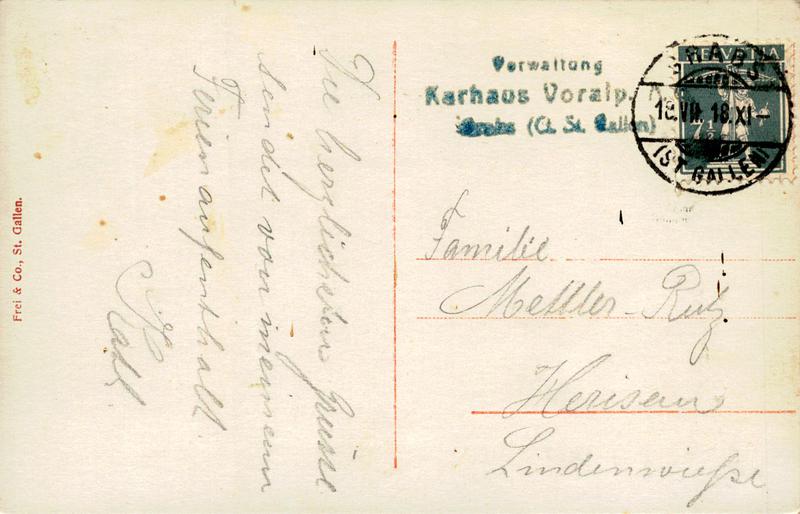 Frei & Co., St. Gallen.
Die herzlichsten Grüsse
sendet von meinem
Ferienaufenthalt
Karl
Verwaltung
Kurhaus Voralp
Grabs (Ct. St. Gallen)
HELVETIA
7½
GRABS
VII. 18. XI–
(ST. GALLEN)
Familie
Mettler-Rutz
Herisau
Lindenwiese